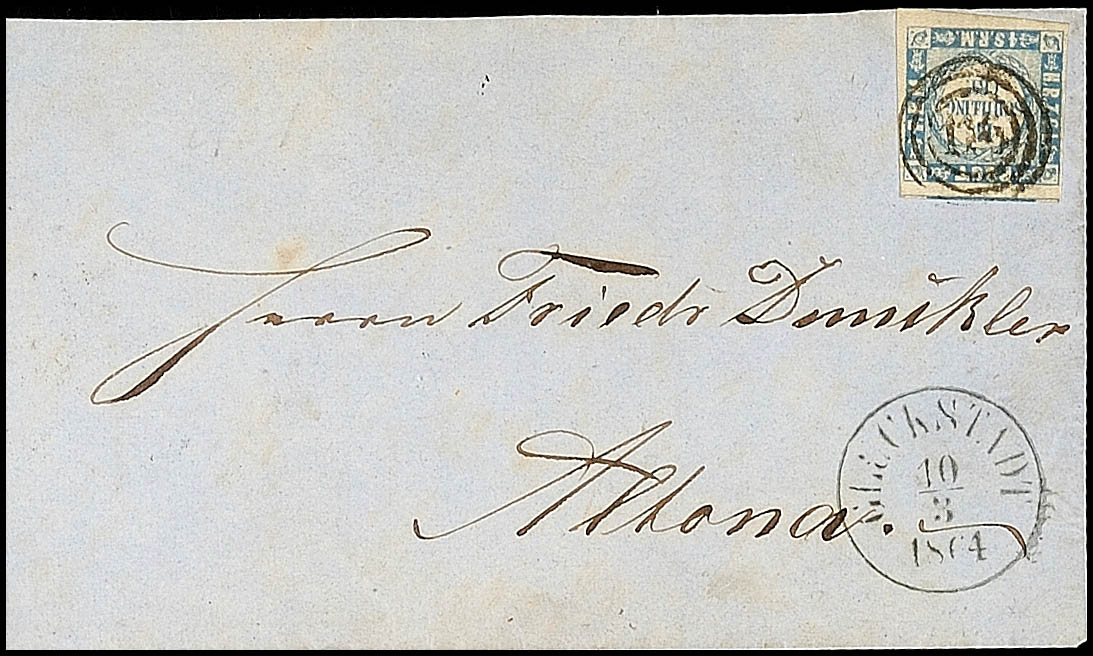 1 S.R.M.
HRZGL
Herrn Friedr Dumikler
Altona.
GLÜCKSTADT
10
3
1864